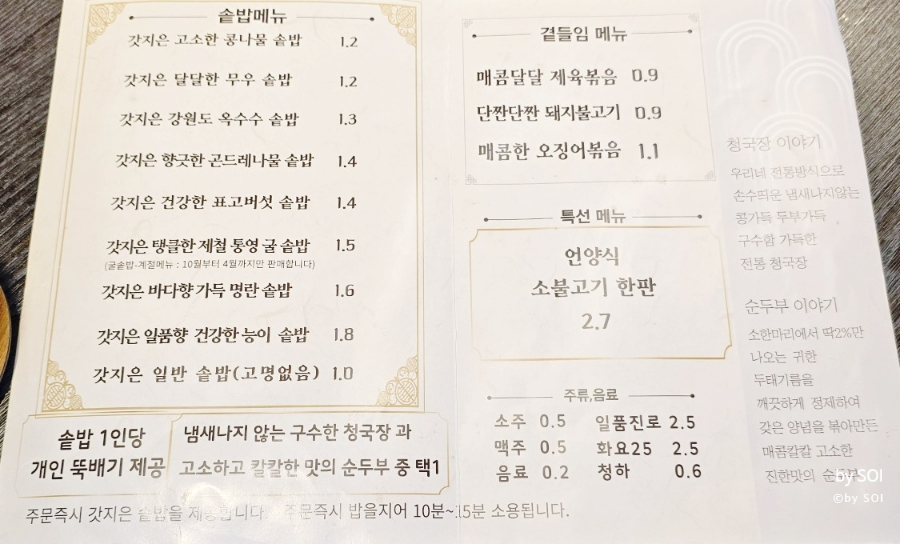 솥밥메뉴
갓지은 고소한 콩나물 솥밥 1.2
갓지은 달달한 무우 솥밥 1.2
갓지은 강원도 옥수수 솥밥 1.3
갓지은 향긋한 곤드레나물 솥밥 1.4
갓지은 건강한 표고버섯 솥밥 1.4
갓지은 탱클한 제철 통영 굴 솥밥 1.5
(굴솥밥-계절메뉴 : 10월부터 4월까지만 판매합니다)
갓지은 바다향 가득 명란 솥밥 1.6
갓지은 일품향 건강한 능이 솥밥 1.8
갓지은 일반 솥밥(고명없음) 1.0
솥밥 1인당
개인 뚝배기 제공
냄새나지 않는 구수한 청국장 과
고소하고 칼칼한 맛의 순두부 중 택1
주문즉시 갓지은 솥밥을 제공합니다. 주문즉시 밥을지어 10분~15분 소용됩니다.
곁들임 메뉴
매콤달달 제육볶음 0.9
단짠단짠 돼지불고기 0.9
매콤한 오징어볶음 1.1
특선 메뉴
언양식
소불고기 한판
2.7
주류,음료
소주 0.5 일품진로 2.5
맥주 0.5 화요25 2.5
음료 0.2 청하 0.6
청국장 이야기
우리네 전통방식으로
손수띄운 냄새나지않는
콩가득 두부가득
구수함 가득한
전통 청국장
순두부 이야기
소한마리에서 딱2%만
나오는 귀한
두태기름을
깨끗하게 정제하여
갖은 양념을 볶아만든
매콤칼칼 고소한
진한맛의 순두부
by SOI
©by SOI